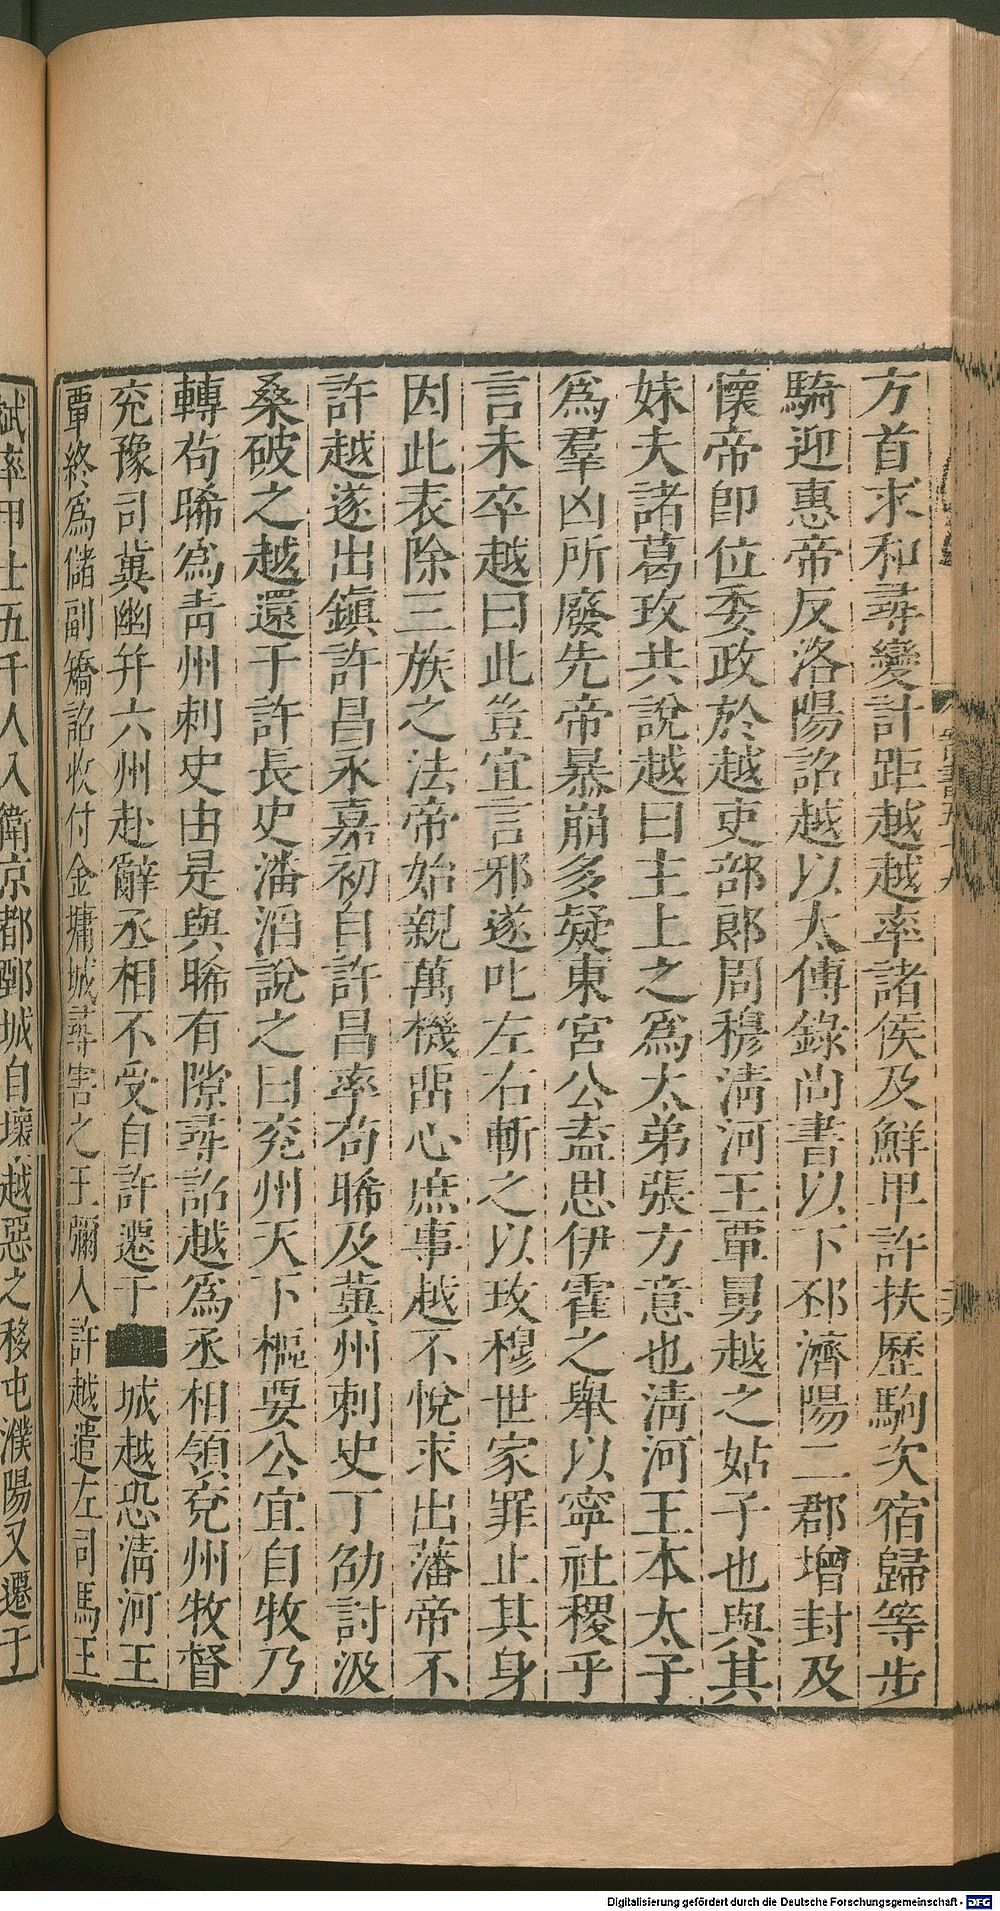 方首求和尋變計距越越率諸侯及鮮卑許扶歷駒次宿歸等步
騎迎惠帝反洛陽詔越以太傅錄尚書以下邳濟陽二郡增封及
懷帝卽位委政於越吏部郞周穆淸河王覃舅越之姑子也與其
妹夫諸葛玫共說越曰主上之爲太弟張方意也淸河王本太子
爲羣凶所廢先帝暴崩多疑東宮公盍思伊霍之舉以寧社稷乎
言未卒越曰此豈宜言邪遂叱左右斬之以玫穆世家罪止其身
因此表除三族之法帝始親萬機畱心庶事越不悅求出藩帝不
許越遂出鎭許昌永嘉初自許昌率苟晞及冀州刺史丁劭討汲
桑破之越還于許長史潘滔說之曰兗州天下樞要公宜自牧乃
轉苟晞爲靑州刺史由是與晞有隙尋詔越爲丞相領兗州牧督
兗豫司冀幽幷六州赴辭丞相不受自許遷于 城越恐淸河王
覃終爲儲副矯詔收付金墉城尋害之王彌入許越遣左司馬王
斌率甲士五千人入衛京都鄄城自壞越惡之移屯濮陽又遷于
Digitalisierung gefördert durch die Deutsche Forschungsgemeinschaft - DFG